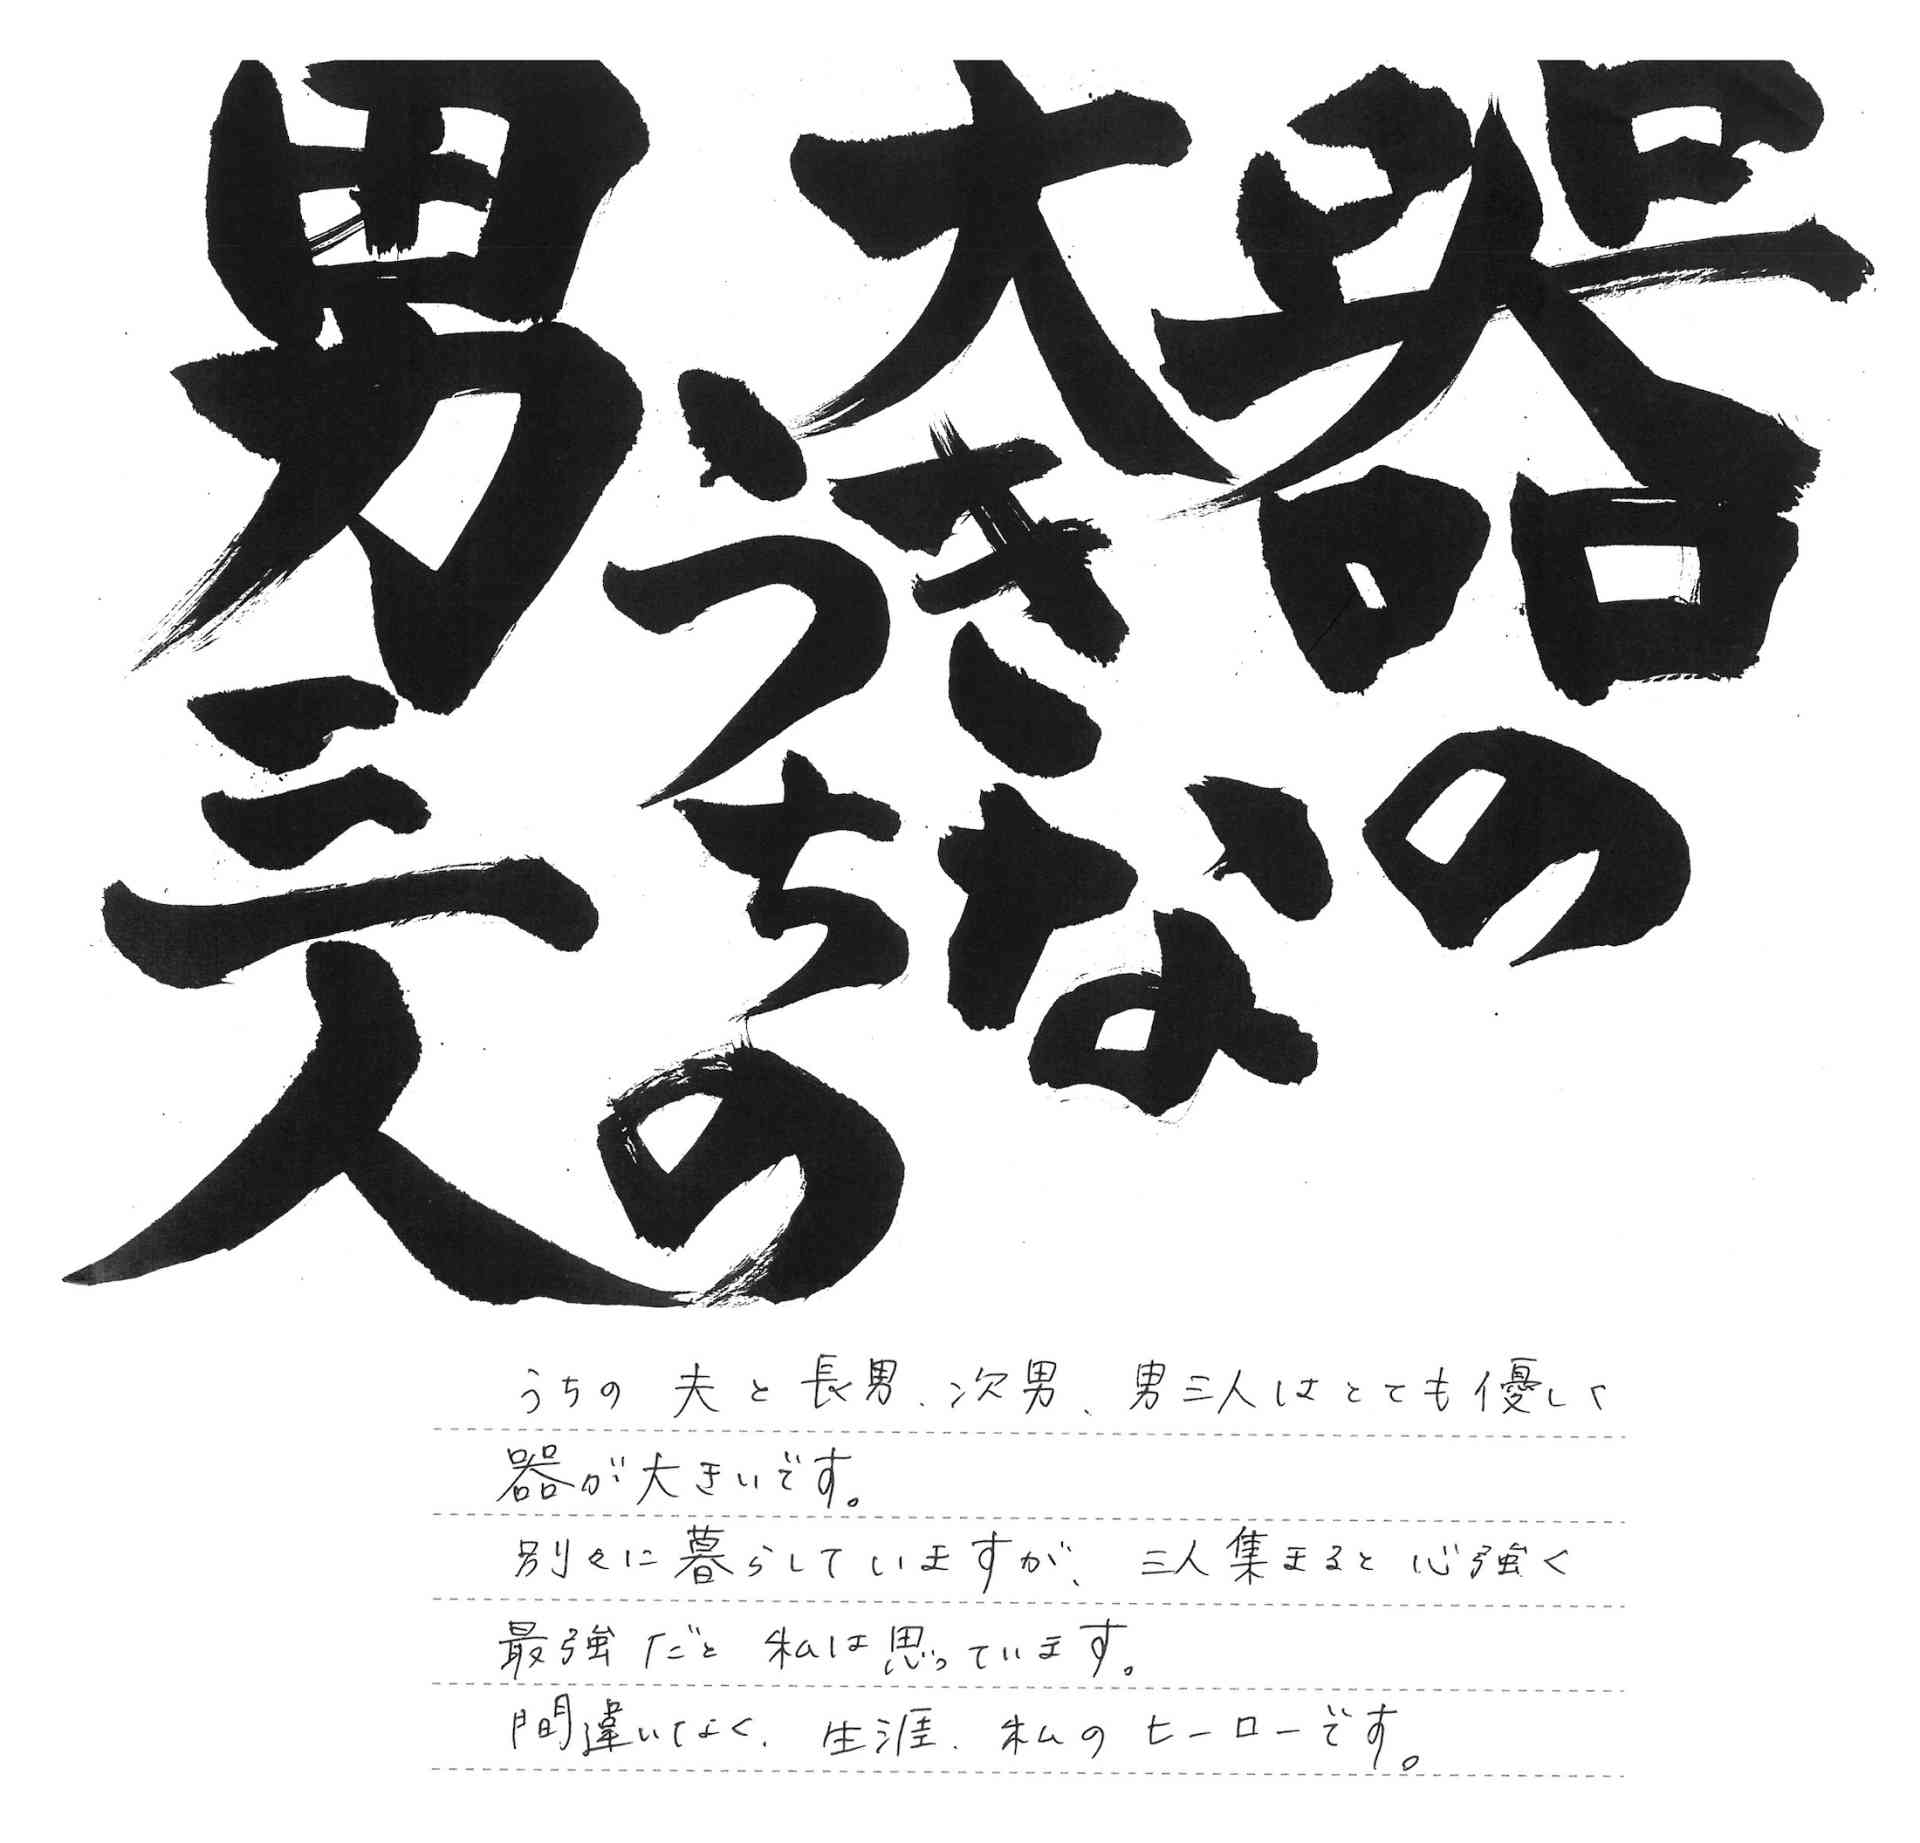 器の
大きな
うちの
男三人
うちの 夫と長男、次男、男三人はとても優しく
器が大きいです。
別々に暮らしていますが、三人集まると心強く
最強だと 私は思っています。
間違いなく、生涯、私のヒーローです。